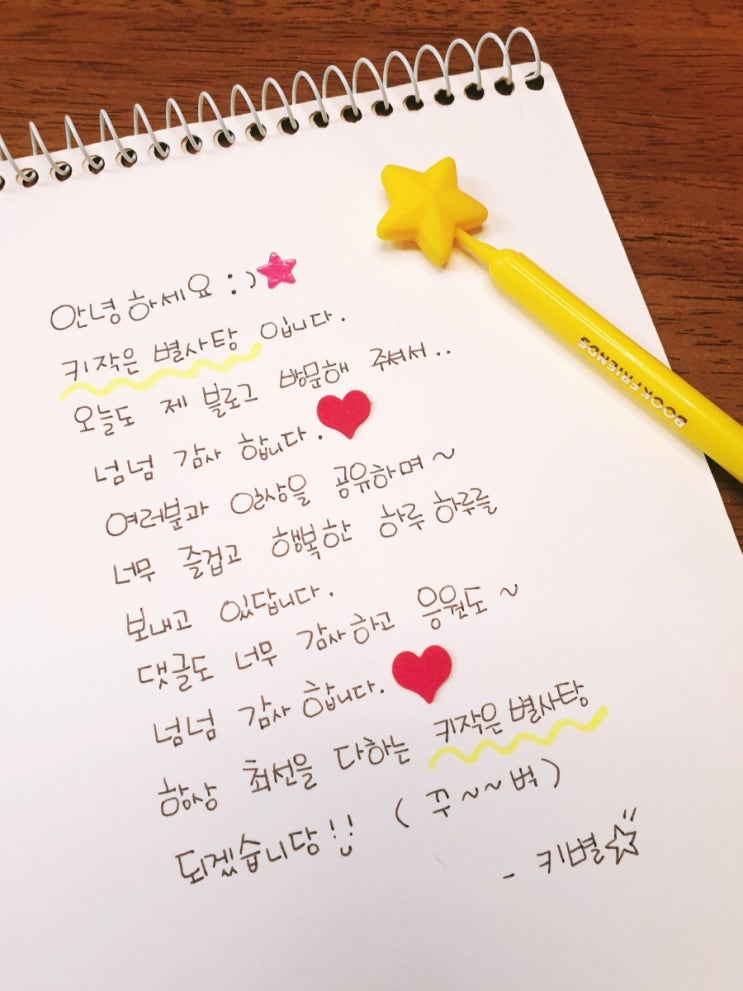 안녕하세요 :)
키작은 별사탕 입니다.
오늘도 제 블로그 방문해 주셔서..
넘넘 감사 합니다.
여러분과 일상을 공유하며~
너무 즐겁고 행복한 하루 하루를
보내고 있답니다.
댓글도 너무 감사하고 응원도~
넘넘 감사 합니다.
항상 최선을 다하는 키작은 별사탕
되겠습니당!! (꾸~~벅)
- 키별☆
BOOKFRIENDS